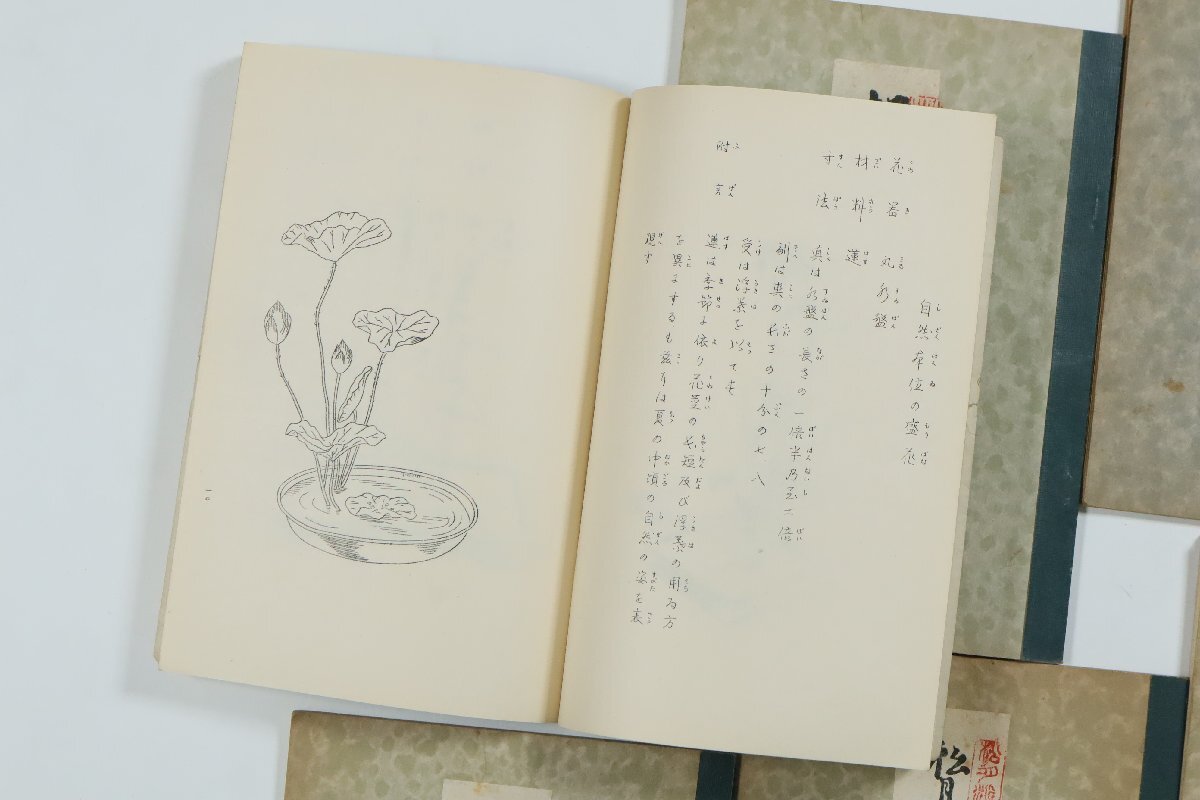 自然本位の盛花
花器 丸水盤
材料 蓮
寸法 真は水盤の長さの一倍半乃至二倍
副は真の長さの十分の七、八
受は浮葉を以てす
附言 蓮は季節に依り花茎の長短及び浮葉の用ゐ方
を異にするも茲には夏の中頃の自然の姿を表
現す